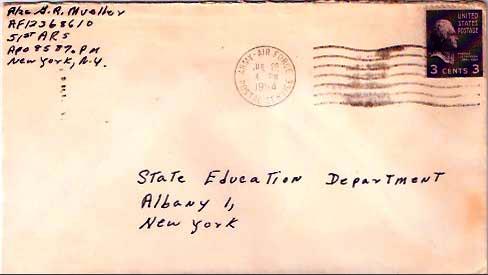 A/2c G. R. Mueller
AF12368610
51st ARS
APO 858 % P M
New York, N.Y.
ARMY-AIR FORCE
POSTAL SERVICE
1954
UNITED
STATES
POSTAGE
3 CENTS 3
State Education Department
Albany 1,
New York